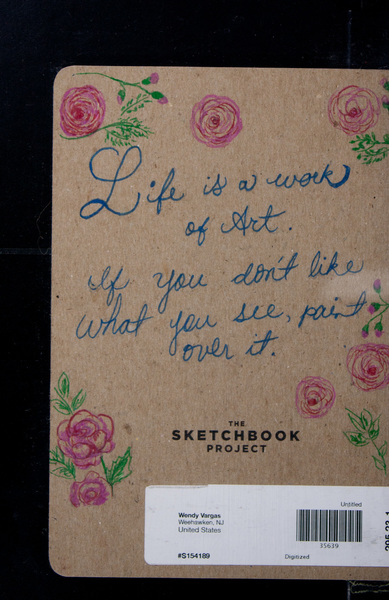 Life is a work
of Art.
If you don't like
what you see, paint
over it.
THE
SKETCHBOOK
PROJECT
Untitled
Wendy Vargas
Weehawken, NJ
United States
35639
#S154189
Digitized